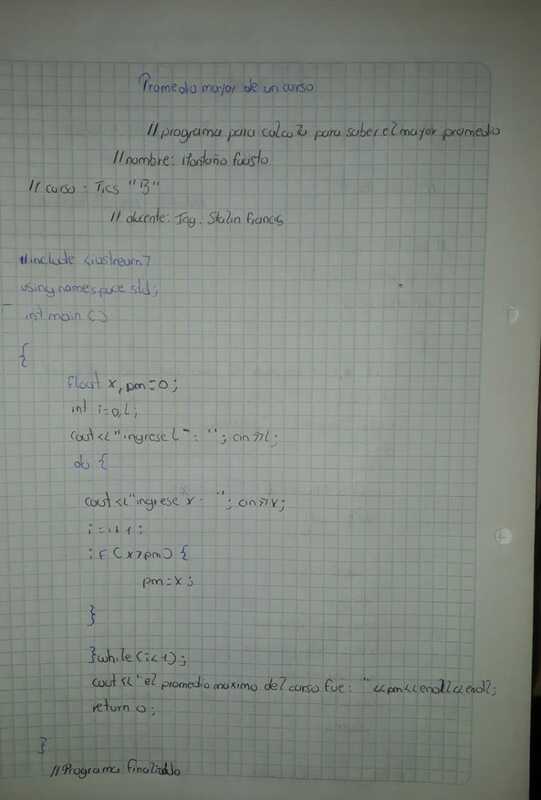 Promedio mayor de un curso
// programa para calcular para saber el mayor promedio
// nombre: Montaño Fausto
// curso: Tics "B"
// docente: Ing. Stalin Francis
#include <iostream>
using namespace std;
int main ()
{
float x, pm=0;
int i=0, l;
cout<<"ingrese l=" "; cin>>l;
do {
cout<<"ingrese x= "; cin>>x;
i=i+1;
if (x>pm) {
pm=x;
}
}while(i<1);
cout<<"el promedio maximo del curso fue: "<<pm<<endl<<endl;
return 0;
}
//Programa finalizado